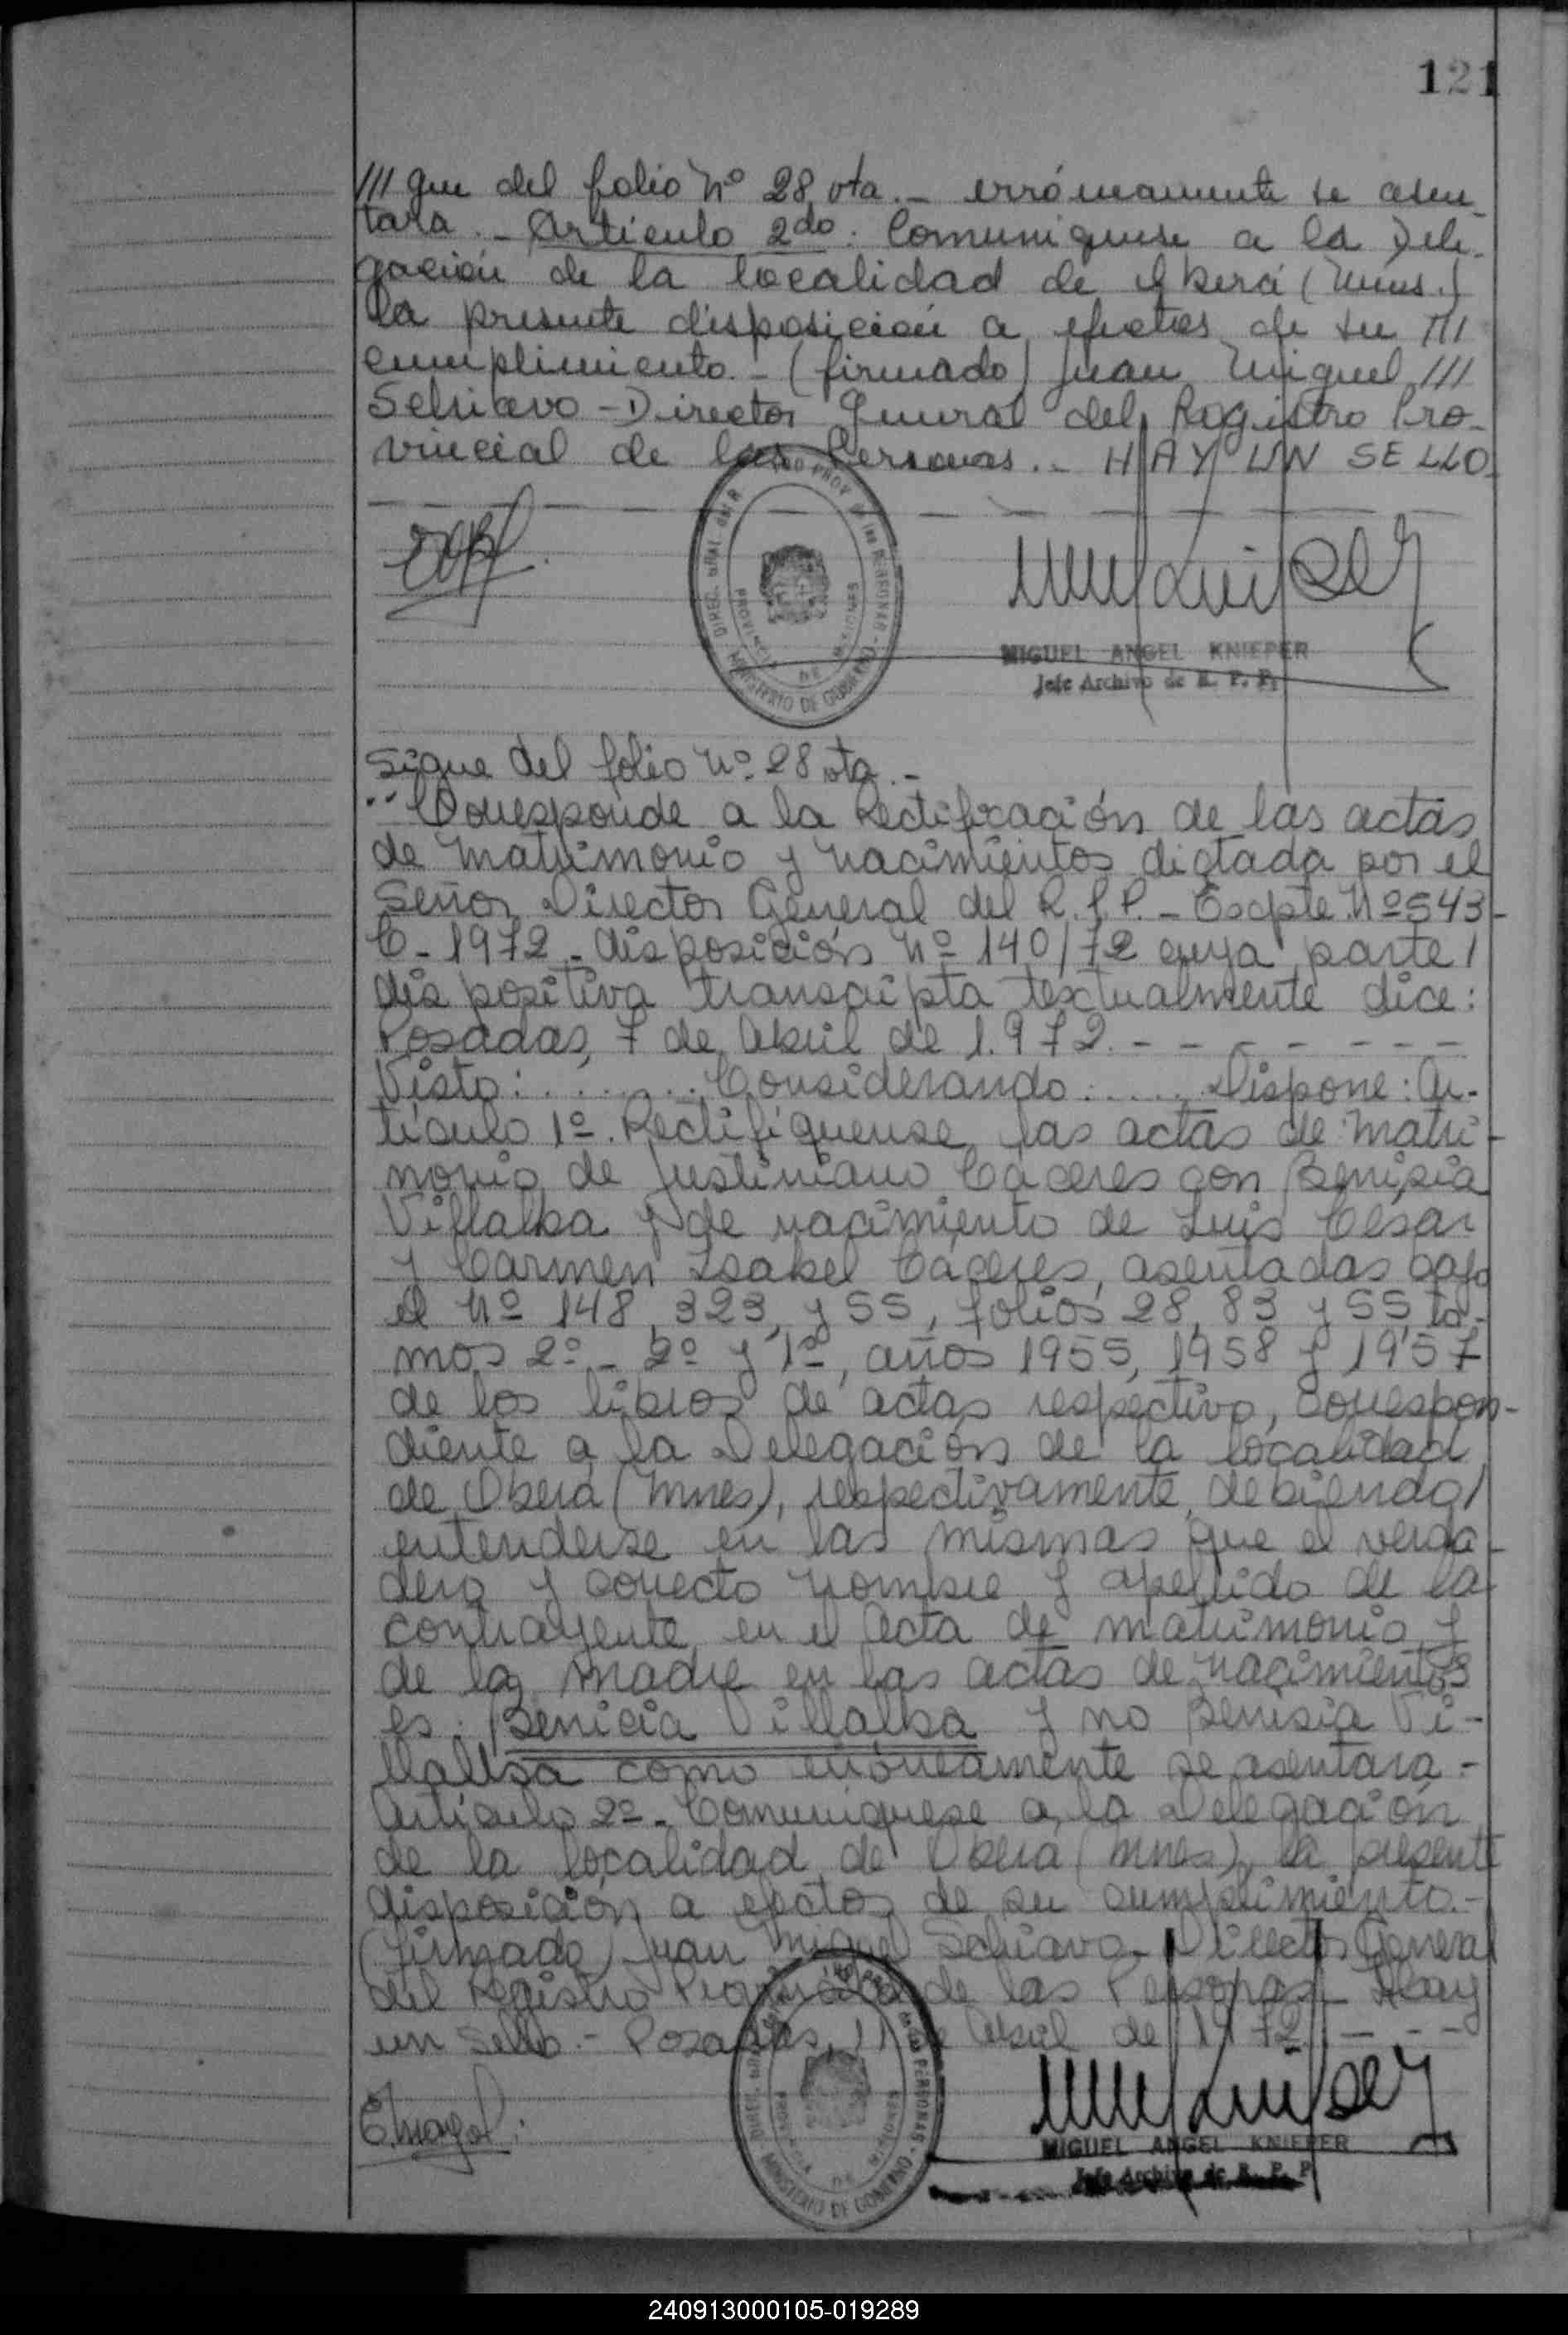 121
/// que del folio Nº 28 vta.- erróneamente se asen-
tara.- Artículo 2do. Comuniquese a la Dele-
gación de la localidad de Oberá (Mnes.)
la presente disposición a efectos de su ///
cumplimiento.- (firmado) Juan Miguel ///
Schiavo - Director General del Registro Pro-
vincial de las Personas.- HAY UN SELLO.
MIGUEL ANGEL KNIEPER
Jefe Archivo de R. P. P.
MINISTERIO DE GOBIERNO
Sigue del folio Nº 28 vta.-
"Corresponde a la Rectificación de las actas
de Matrimonio y Nacimientos dictada por el
Señor Director General del R.P.P.- Expte. Nº 543-
C-1972.- disposición Nº 140/72 cuya parte /
dispositiva transcipta textualmente dice:
Posadas, 7 de Abril de 1.972.- - - - - - - -
Visto: ....... Considerando: ..... Dispone: Ar-
tículo 1º. Rectifíquense las actas de Matri-
monio de Justiniano Cáceres con Benisia
Villalba y de nacimiento de Luis César
y Carmen Isabel Cáceres, asentadas bajo
el Nº 148, 323, y 55, folios 28, 83 y 55 to-
mos 2º - 2º y 1º, años 1955, 1958 y 1957
de los libros de actas respectivo, correspon-
diente a la Delegación de la localidad
de Oberá (Mnes), respectivamente, debiendo /
entenderse en las mismas que el verda-
dero y correcto nombre y apellido de la
contrayente en el acta de matrimonio y
de la madre en las actas de nacimientos
es: Benicia Villalba y no Benisia Vi-
llalba como erróneamente se asentara.-
Artículo 2º- Comuniquese a la Delegación
de la localidad de Oberá (Mnes), la presente
disposición a efectos de su cumplimiento.-
(firmado) Juan Miguel Schiavo - Director General
del Registro Provincial de las Personas - Hay
un Sello.- Posadas, 11 de Abril de 1972.- - - -
MIGUEL ANGEL KNIEPER
Jefe Archivo de R. P. P.
MINISTERIO DE GOBIERNO
240913000105-019289